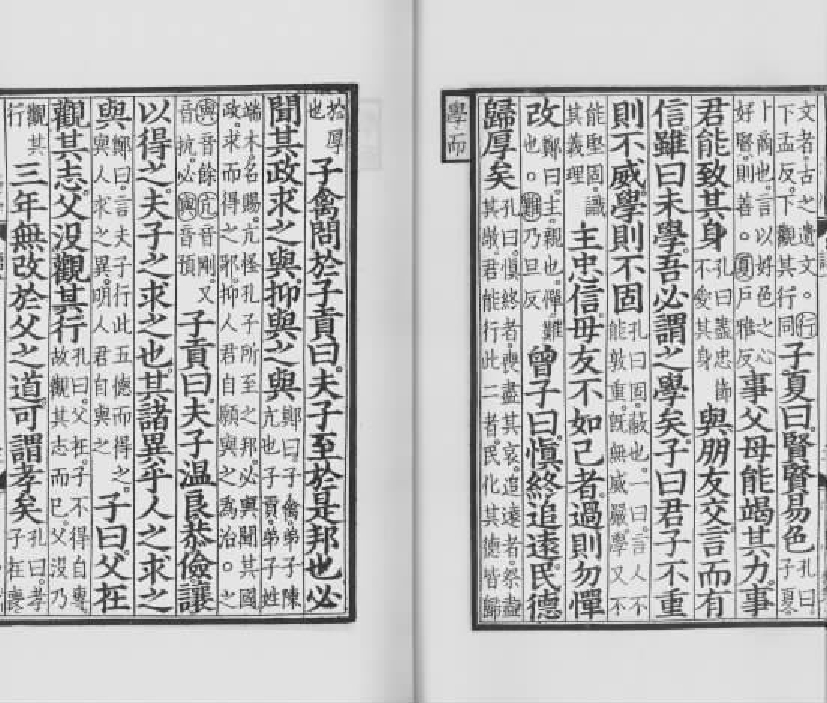 文者古之遺文。行下孟反下觀其行同子夏曰賢賢易色孔曰子夏
卜商也言以好色之心好賢則善。夏戶雅反事父母能竭其力事
君能致其身孔曰盡忠節不愛其身與朋友交言而有
信雖曰未學吾必謂之學矣子曰君子不重
則不威學則不固孔曰固蔽也一曰言人不能敦重既無威嚴學又不
能堅固識其義理主忠信毋友不如己者過則勿憚
改鄭曰主親也憚難也。難乃旦反曾子曰慎終追遠民德
歸厚矣孔曰慎終者喪盡其哀追遠者祭盡其敬君能行此二者民化其德皆歸
學而
於厚也子禽問於子貢曰夫子至於是邦也必
聞其政求之與抑與之與鄭曰子禽弟子陳亢也子貢弟子姓
端木名賜亢怪孔子所至之邦必與聞其國政求而得之邪抑人君自願與之為治。之
與音餘亢音剛又音抗必與音預子貢曰夫子溫良恭儉讓
以得之夫子之求之也其諸異乎人之求之
與鄭曰言夫子行此五德而得之與人求之異明人君自與之子曰父在
觀其志父沒觀其行孔曰父在子不得自專故觀其志而已父沒乃
觀其行三年無改於父之道可謂孝矣孔曰孝子在喪